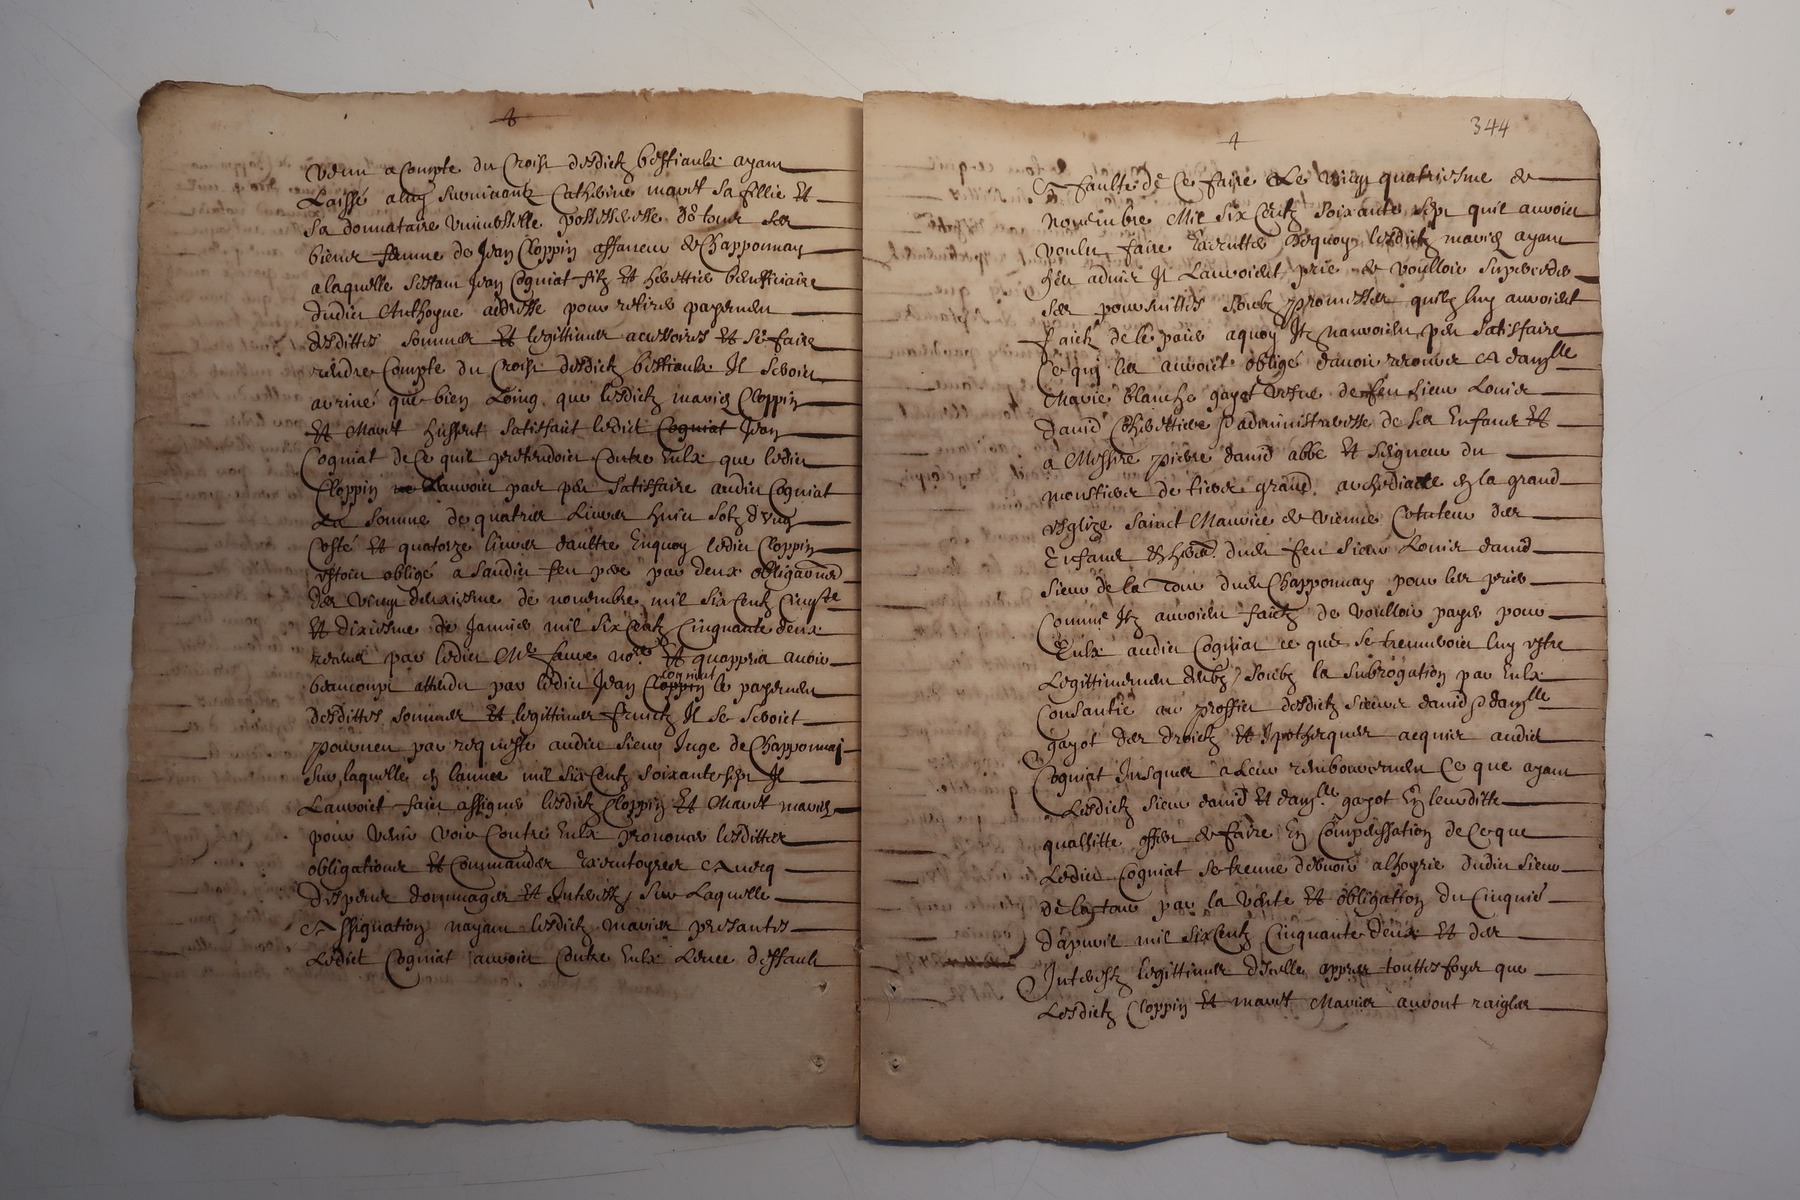 venu a compte du Croist desdictz bestiaulx ayant
Laissé a luy survivante Catherine mavet sa fillie Et
sa donnataire universelle possesseresse de tous ses
biens femme de Jean Cloppin affaneur de Chapponnay
a laquelle sestant Jean Cogniat filz Et herettier beneficiaire
dudict Anthoyne addressé pour retirer payement
desdittes sommes Et legittimes accessoires Et se faire
rendre Compte du Croist desdictz bestiaulx Il seroit
arrivé que bien Loing que lesdictz mariés Cloppin
Et Mavet heussent satisfaict ledict Cogniat Jean
Cogniat de Ce quil prettendoit Contre Eulx que ledict
Cloppin nauroit pas peu satisfaire audict Cogniat
La somme de quatres Livres huict solz d'vng
Costé Et quatorze livres daultre Enquoy ledict Cloppin
estoit obligé a sondict feu pere par deux obligations
des vingt deuxiesme de novembre mil six Centz Cinqte
Et dixiesme de Janvier mil six Centz Cinquante deux
receues par ledict Me faure nore Et quappres avoir
beaucoupt attendu par ledict Jean Cloppin cogniat le payement
desdittes sommes Et legittimes fruictz Il se seroict
pourveu par requeste audict sieur Juge de Chapponnay
sur laquelle En lannee mil six Centz soixante sept Il
Lauroict faict assigner lesdictz Cloppin Et Mavet mariés
pour venir voir Contre Eulx prononcer lesdittes
obligations Et Commandes Executoyres Avecq
despens dommages Et Interestz sur Laquelle
Assignation nayant lesdictz mariés presantés
Ledict Cogniat auroit Contre Eulx Levee deffault
344
A faulte de Ce faire Le vingt quatriesme de
novembre Mil six Centz soixante sept quil auroict
voulu faire dequoy lesdictz mariés ayant
heu advis Il Lauroient prié de voulloir superceder
ses poursuittes soubz promesses quilz luy auroient
faictz de le payer aquoy Ilz nauroient peu satisfaire
Ce qui les auroict obligé davoir recours A damlle
Marie blanche gayot vefve de feu sieur Louis
david Cherettiere administraresse de ses Enfans Et
a Messire pierre david abbe Et seigneur du
monstier de tiers grand archediacre En la grand
Esglize sainct Maurice de vienne Cotuteur des
Enfans Et dudit feu sieur Louis david
sieur de la Tour dudit Chapponnay pour les prier
Comme Ilz auroient faictz de voulloir payer pour
Eulx audict Cogniat ce que se treuveroit luy estre
Legittimement deubz soubz la subrogation par Eulx
Consantie au proffict desdictz sieurs david damlle
gayot des droictz Et Ipotheques acquis audict
Cogniat Jusques a Leur remboursement Ce que ayant
Lesdictz sieur david Et damlle gayot En leurditte
quallitte offert de faire En Compessation de Ce que
Ledict Cogniat se treuve debvoir a lhoyrie dudict sieur
de la tour par la vente Et obligation du Cinquie
dapvril mil six Centz Cinquante deux Et des
Interestz legittimes dicelle appres touttesfoys que
Lesdictz Cloppin Et mavet Mariés auront raigles